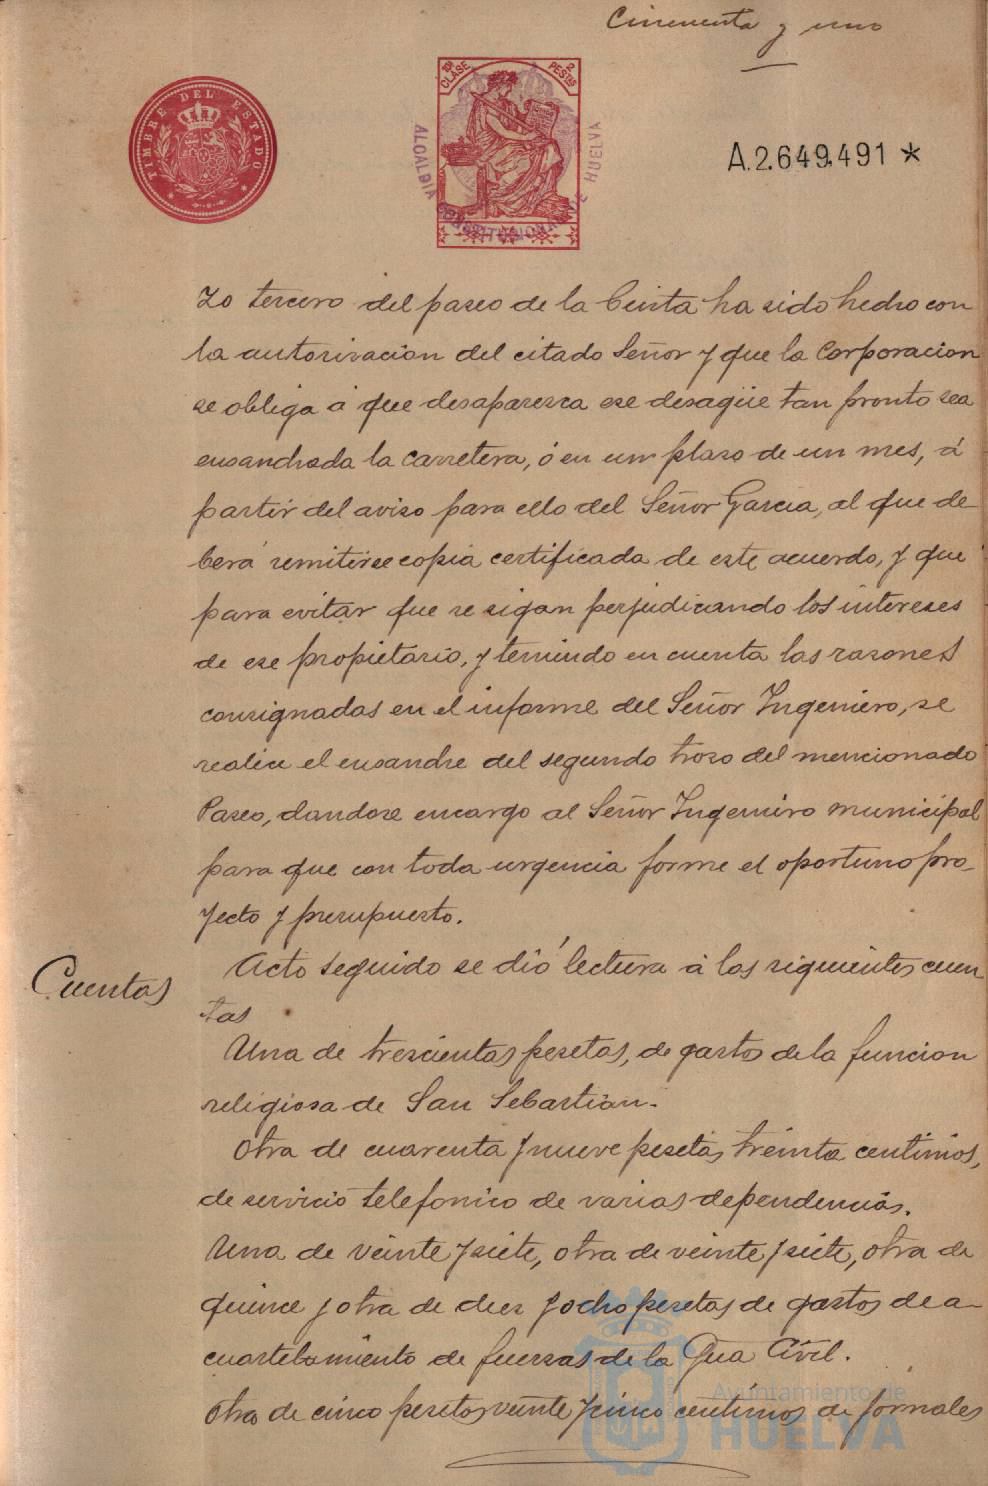 Cincuenta y uno
TIMBRE DEL ESTADO
10ª CLASE 2 PESTAS
ALCALDIA CONSTITUCIONAL DE HUELVA
A.2.649.491 *
zo tercero del paseo de la Cinta ha sido hecho con
la autorizacion del citado Señor y que la Corporacion
se obliga á que desaparezca ese desagüe tan pronto sea
ensanchada la carretera, ó en un plazo de un mes, á
partir del aviso para ello del Señor Garcia, al que de
berá remitirse copia certificada de este acuerdo, y que
para evitar que se sigan perjudicando los intereses
de ese propietario, y teniendo en cuenta las razones
consignadas en el informe del Señor Ingeniero, se
realice el ensanche del segundo trozo del mencionado
Paseo, dandose encargo al Señor Ingeniero municipal
para que con toda urgencia forme el oportuno pro-
yecto y presupuesto.
Cuentas
Acto seguido se dió lectura á las siguientes cuen
tas
Una de trescientas pesetas, de gastos de la funcion
religiosa de San Sebastian.
Otra de cuarenta y nueve pesetas treinta centimos,
de servicio telefonico de varias dependencias.
Una de veinte y siete, otra de veinte y siete, otra de
quince y otra de diez y ocho pesetas de gastos de a-
cuartelamiento de fuerzas de la Gua Civil.
Otra de cinco pesetas veinte y cinco centimos de jornales
Ayuntamiento de
HUELVA